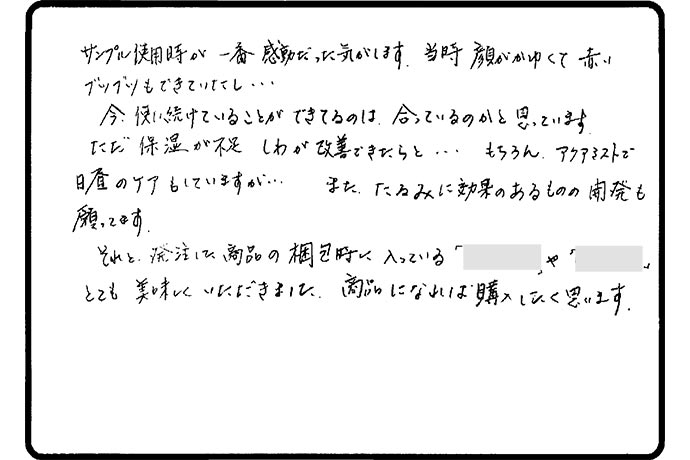 サンプル使用時が 一番 感動だった気がします. 当時 顔がかゆくて 赤い
ブツブツもできていたし・・・
今、使い続けていることが できてるのは、合っているのかと 思っています.
ただ 保湿が不足 しわが改善できたらと・・・ もちろん、アクアミストで
日昼のケアもしていますが・・・ また、たるみに効果のあるものの 開発も
願ってます.
それと、発注した 商品の 梱包時に 入っている「 」や「 」
とても 美味しく いただきました. 商品になれば 購入したく思います.